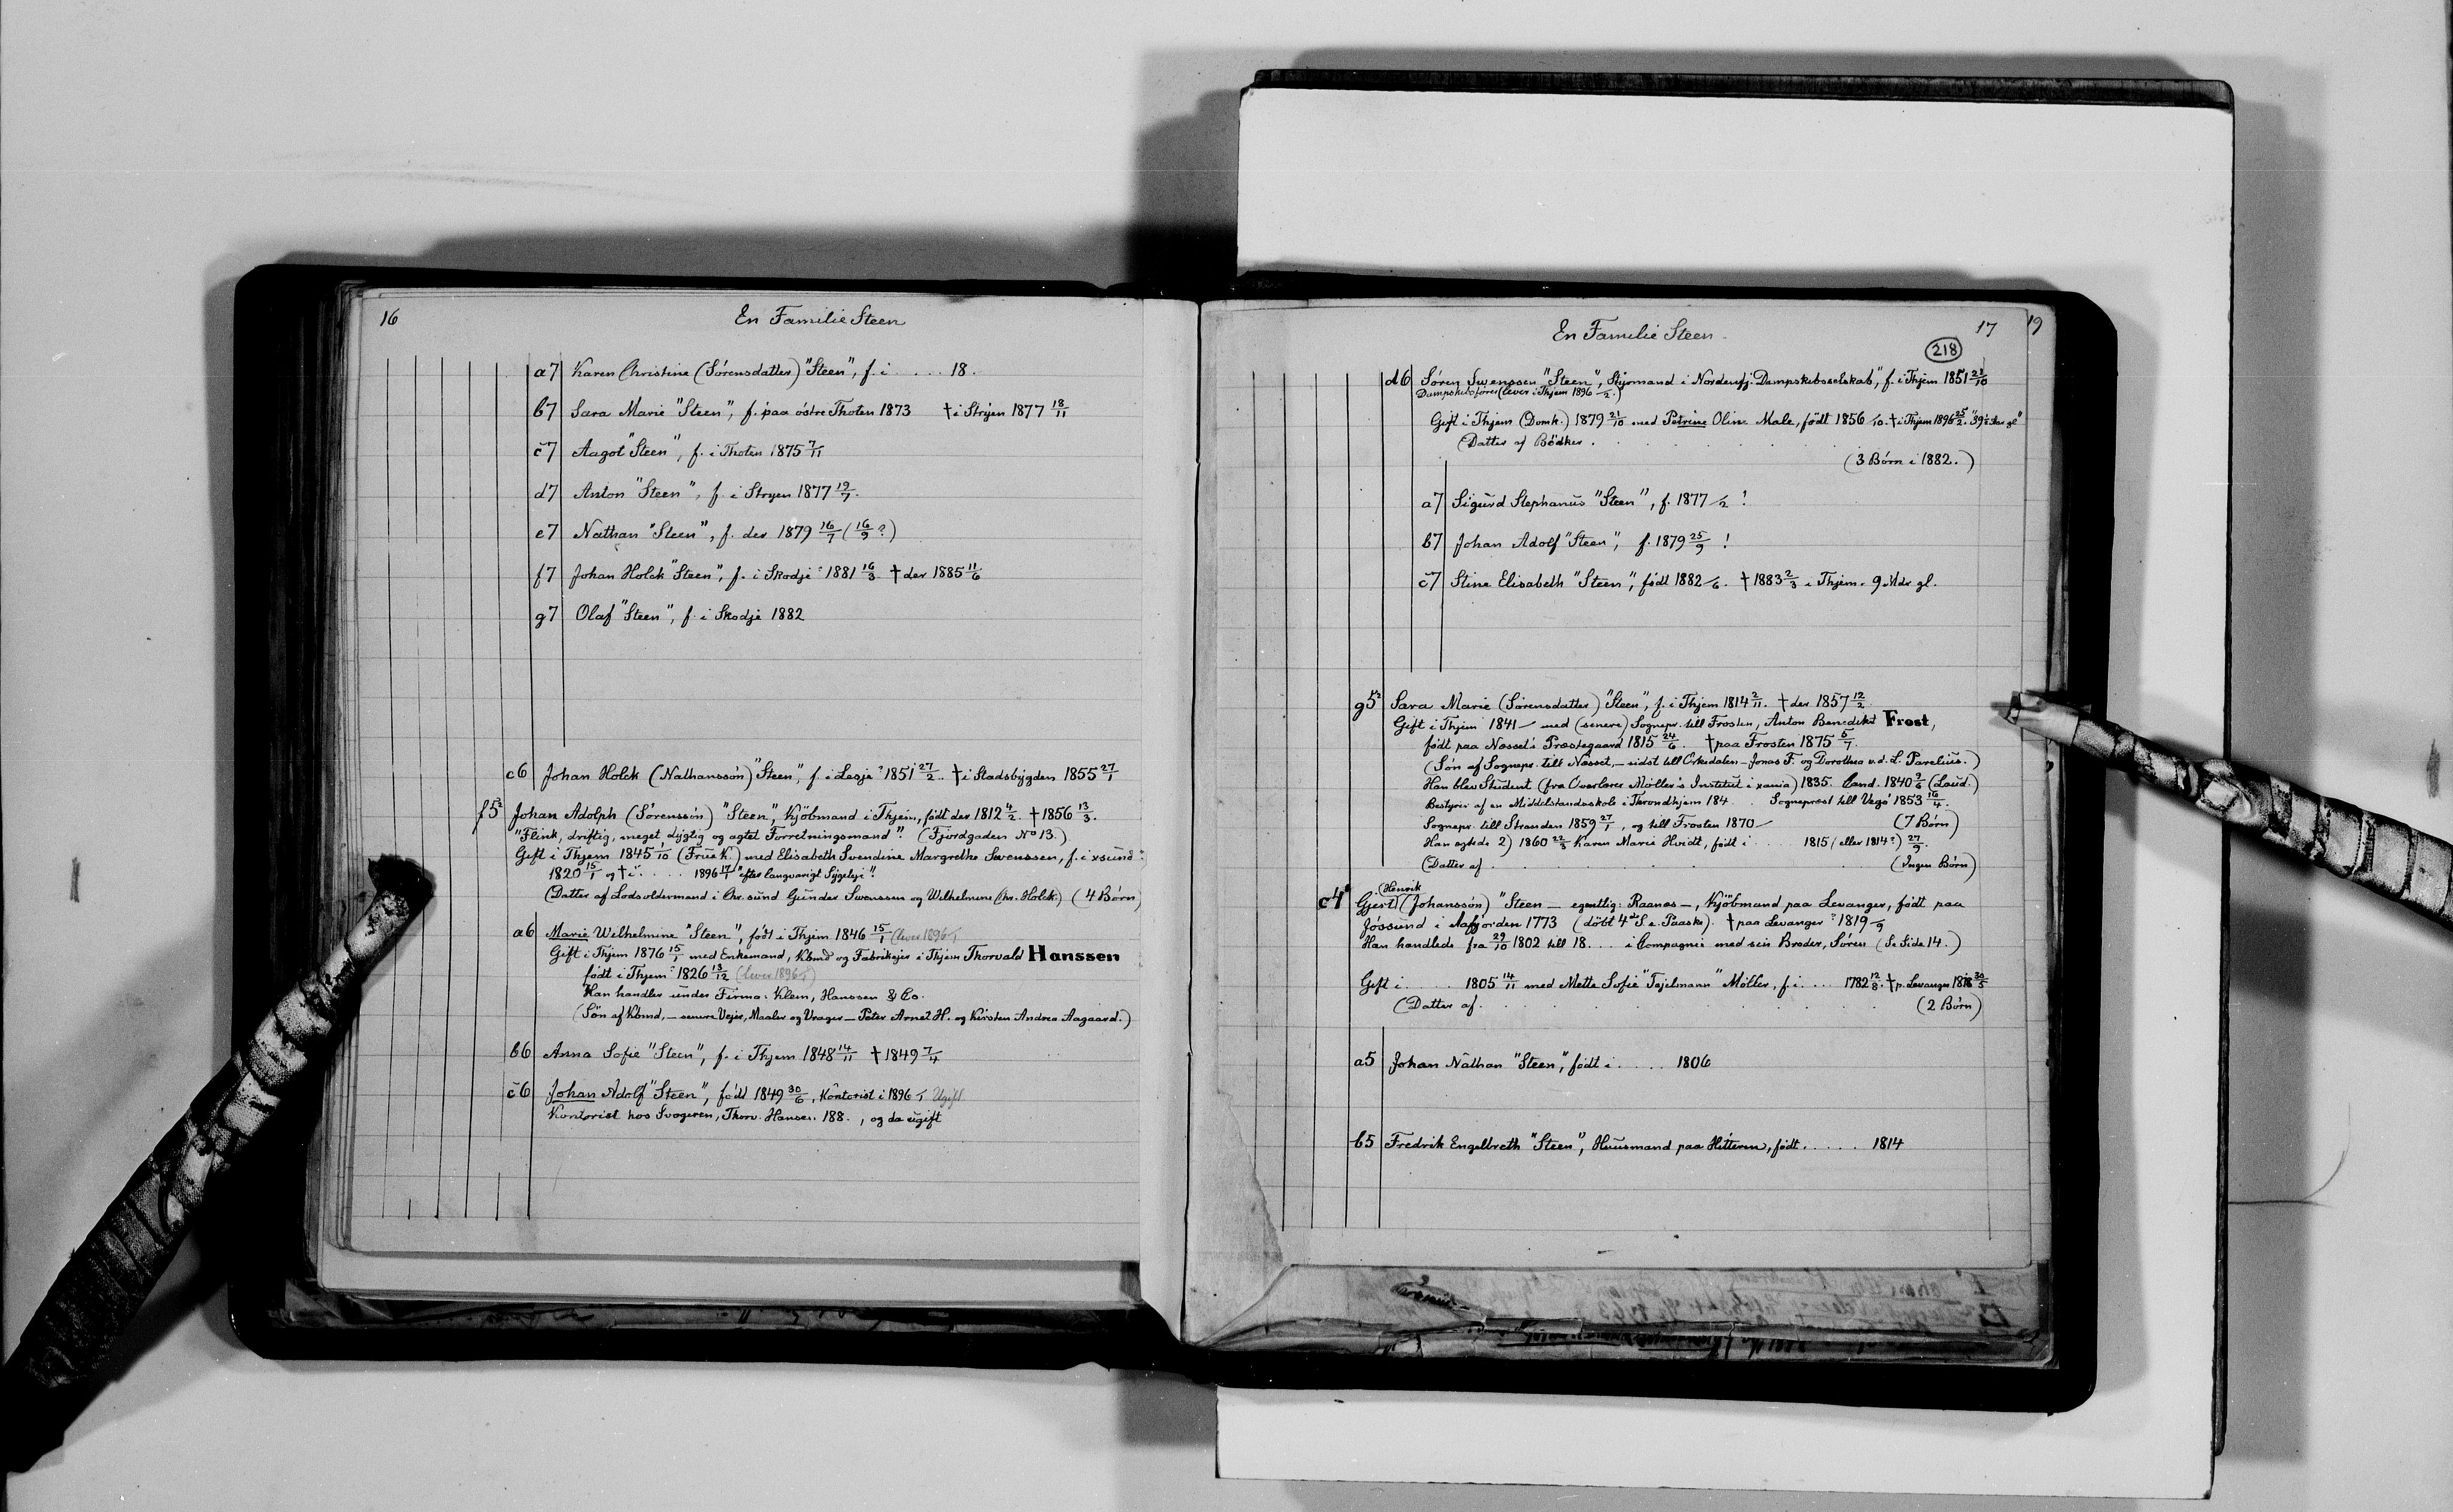 16
En Familie Steen
a7 Karen Christine (Sörensdatter) "Steen", f. i . . . . 18 .
b7 Sara Marie "Steen", f. paa östre Thoten 1873 † i Stryen 1877 18/11
c7 Aagot "Steen", f. i Thoten 1875 7/11
d7 Anton "Steen", f. i Stryen 1877 19/7.
e7 Nathan "Steen", f. der 1879 16/7 (16/9 ?)
f7 Johan Holck "Steen", f. i Skodje ? 1881 16/3 † der 1885 11/6
g7 Olaf "Steen", f. i Skodje 1882
c6 Johan Holck (Nathanssön) "Steen", f. i Lesje ? 1851 27/2. † i Stadsbygden 1855 27/1
f5² Johan Adolph (Sörenssön) "Steen", Kjöbmand i Thjem, födt der 1812 4/2. † 1856 13/3.
"Flink, driftig, meget dygtig og agtet Forretningsmand". (Fjordgaden No 13.)
Gift i Thjem 1845 1/10 (Frue K.) med Elisabeth Svendine Margrethe Swenssen, f. i xsund ?
1820 15/1 og † i . . . . 1896 17/1 "efter langvarigt Sygeleje".
(Datter af Lodsoldermand i Chr.sund Gunder Swenssen og Wilhelmine Chr. Holck.) (4 Börn)
a6 Marie Wilhelmine "Steen", födt i Thjem 1846 15/1 (lever 1896
Gift i Thjem 1876 15/1 med Enkemand, Kbmd og Fabrikejer i Thjem Thorvald Hanssen
födt i Thjem ? 1826 13/12 (lever 1896)
Han handler under Firma: Klem, Hanssen & Co.
(Sön af Kbmd, — senere Vejer, Maaler og Vrager — Peter Arnet H. og Kirsten Andrea Aagaard.)
b6 Anna Sofie "Steen", f. i Thjem 1848 14/11 † 1849 7/4
c6 Johan Adolf "Steen", födt 1849 30/6, Kontorist i 1896 Ugift
Kontorist hos Svogeren, Thorv. Hanssen 188 . , og da ugift
En Familie Steen
17 19
218
d6 Sören Swenssen "Steen", Styrmand i Nordenfj. Dampskibsselskab, f. i Thjem 1851 21/10
Dampskibsförer (lever i Thjem 1896 /2.)
Gift i Thjem (Domk.) 1879 21/10 med Petrine Oline Male, födt 1856 /10. † i Thjem 1896 25/2. "39½ Aar gl"
(Datter af Bödker .
(3 Börn i 1882.)
a7 Sigurd Stephanus "Steen", f. 1877 /2 !
b7 Johan Adolf "Steen", f. 1879 25/9 !
c7 Stine Elisabeth "Steen", födt 1882 /6. † 1883 2/3 i Thjem. 9 Mdr gl.
g5² Sara Marie (Sörensdatter) "Steen", f. i Thjem 1814 2/11. † der 1857 12/2
Gift i Thjem 1841 — med (senere) Sognepr. till Frosten, Anton Benedikt Frost,
födt paa Næsset's Præstegaard 1815 24/6. † paa Frosten 1875 5/7.
(Sön af Sognepr. till Næsset, — sidst till Orkedalen — Jonas F. og Dorothea v.d. L. Parelius.)
Han blev Student (fra Overlærer Möller's Institut i xania) 1835. Cand. 1840 9/6 (Laud.)
Bestyrer af en Middelstandsskole i Throndhjem 184 . . Sognepræst till Vegö 1853 16/4.
Sognepr. till Stranden 1859 27/1, og till Frosten 1870 — (7 Börn)
Han egtede 2) 1860 22/3 Karen Marie Hvidt, födt i . . . . 1815 (eller 1814 ?) 27/9.
(Datter af . . . (Ingen Börn)
c4 Gjert (Henrik) (Johanssön) "Steen — egentlig: Raanes —, Kjöbmand paa Levanger, födt paa
Jössund i Aafjorden 1773 (döbt 4de S. e. Paaske). † paa Levanger ? 1819 /9
Han handlede fra 29/10 1802 till 18 . . . i Compagnie med sin Broder, Sören (Se Side 14.)
Gift i . . . . 1805 14/11 med Mette Sofie "Tejelmann" Möller, f. i . . . . 1782 12/8. † p. Levanger 1818 30/5
(Datter af . . . (2 Börn)
a5 Johan Nathan "Steen", födt i . . . . 1806
b5 Fredrik Engelbreth "Steen", Huusmand paa Hitteren, födt . . . . . 1814